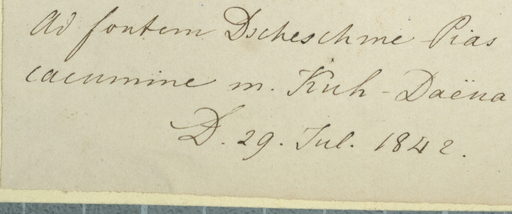 Ad fontem Dscheschme Pias
cacumine m. Kuh-Daëna
D. 29. Jul. 1842.